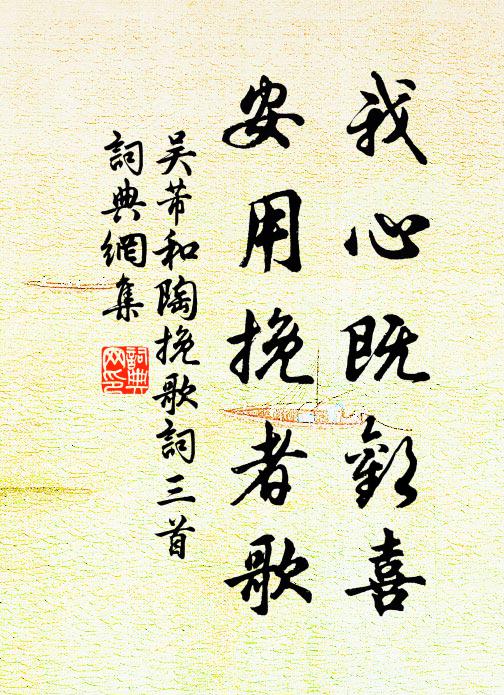 我心既歡喜
安用挽者歌
吳芾和陶挽歌詞三首
詞典網集
詞典网印